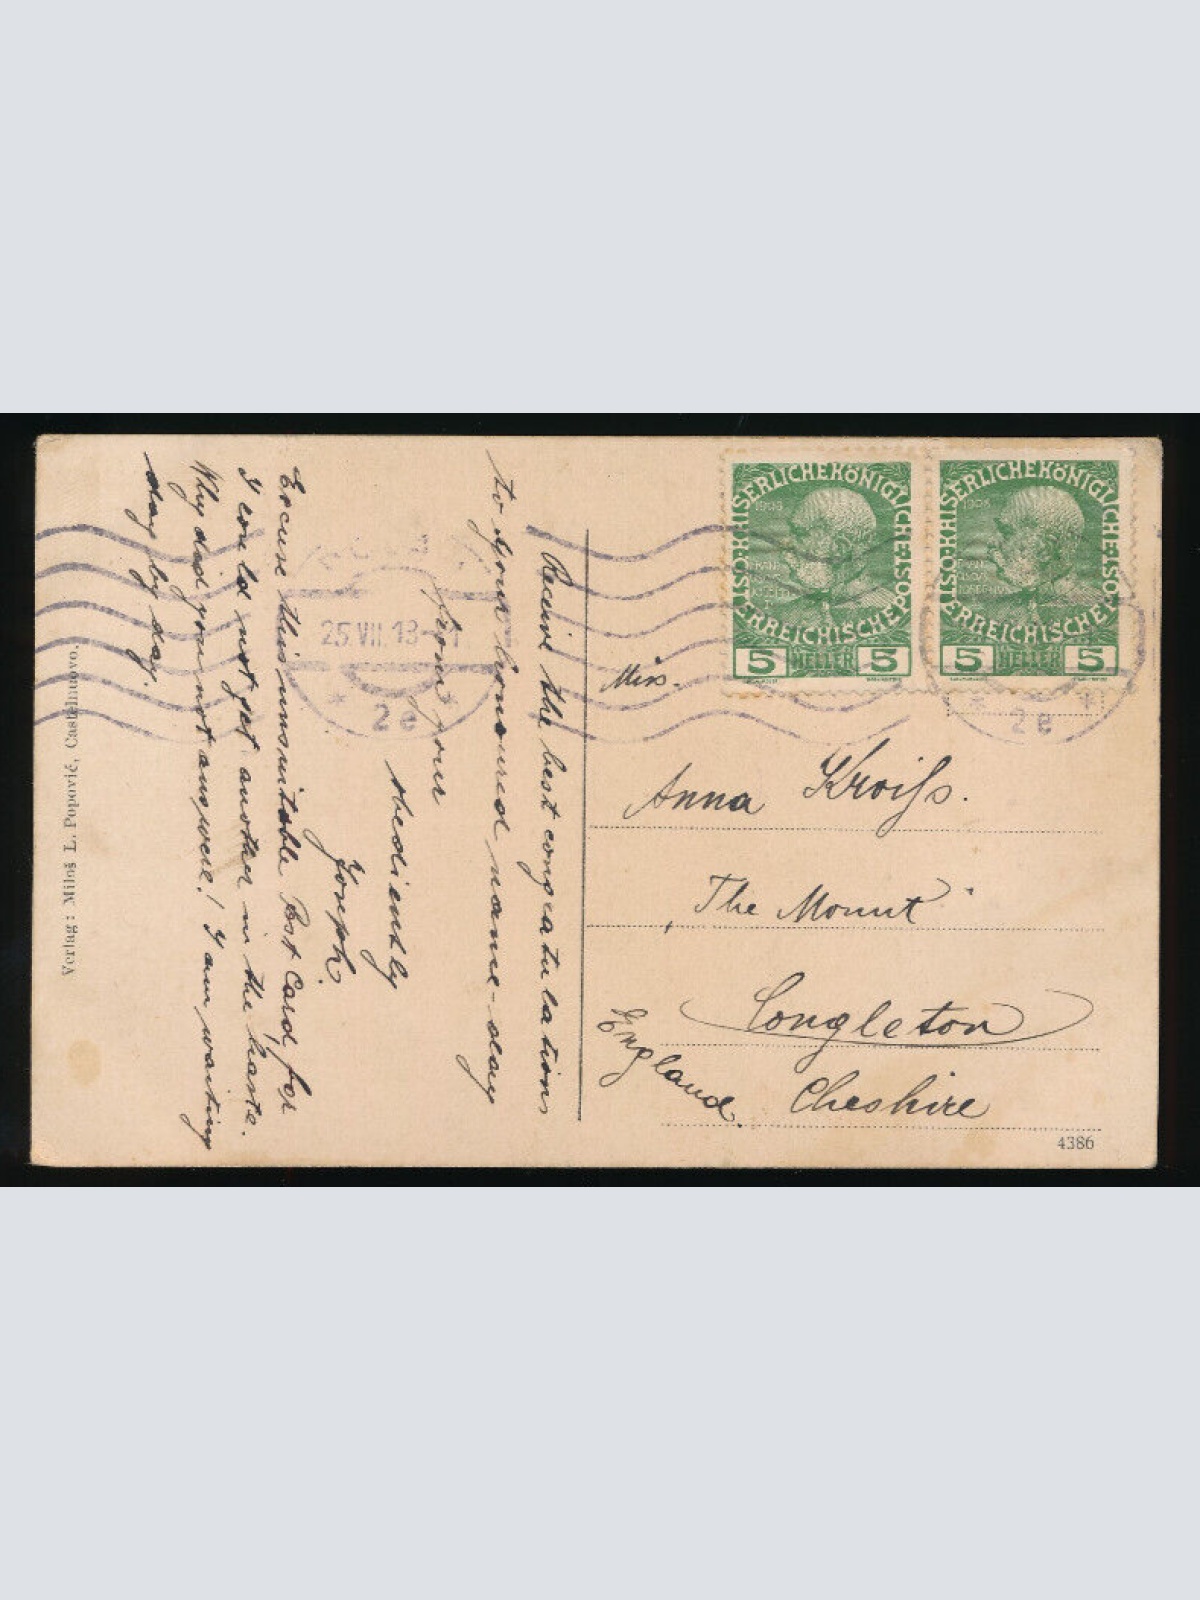 Receive the best congratulations
to your honoured name-day
from your
obediently
Joseph.
Excuse this unsuitable Post Card, for
I could not get another in the haste.
Why did you not answere! I am waiting
day by day.
Verlag: Miloš L. Popović, Castelnuovo.
25 VII. 13
* 2e *
KAISERLICHE KÖNIGLICHE ÖSTERREICHISCHE POST
1908
5 HELLER 5
KAISERLICHE KÖNIGLICHE ÖSTERREICHISCHE POST
1908
5 HELLER 5
* 2e *
Miss.
Anna Kroiss.
„The Mount"
Congleton
Cheshire
England.
4386